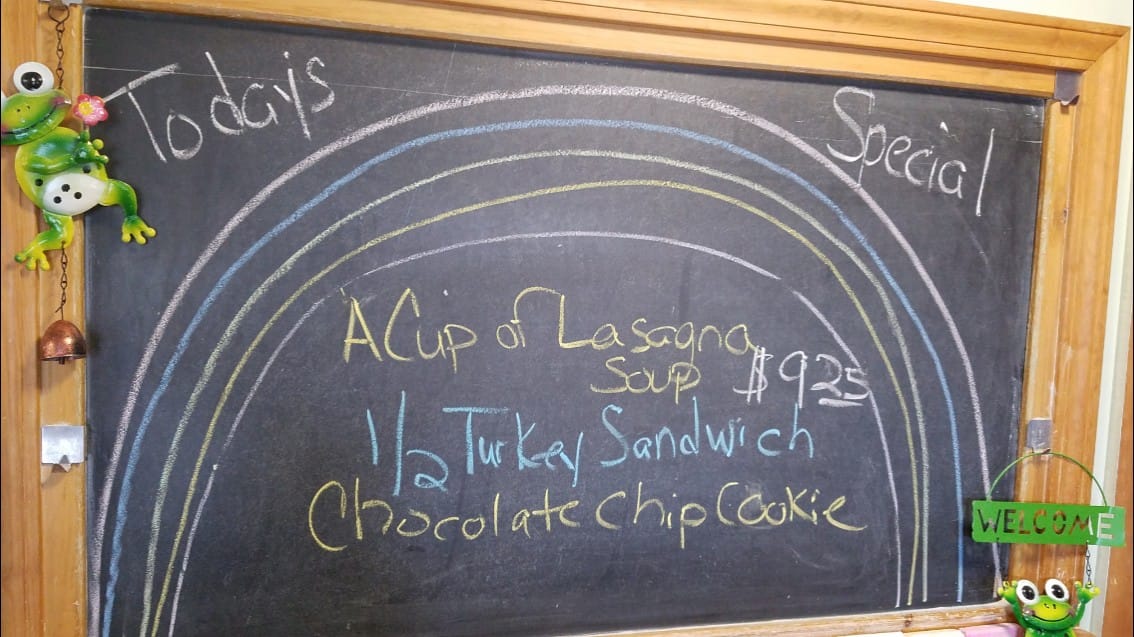 Todays Special
A Cup of Lasagna
Soup $9 25
1/2 Turkey Sandwich
Chocolate Chip Cookie
WELCOME